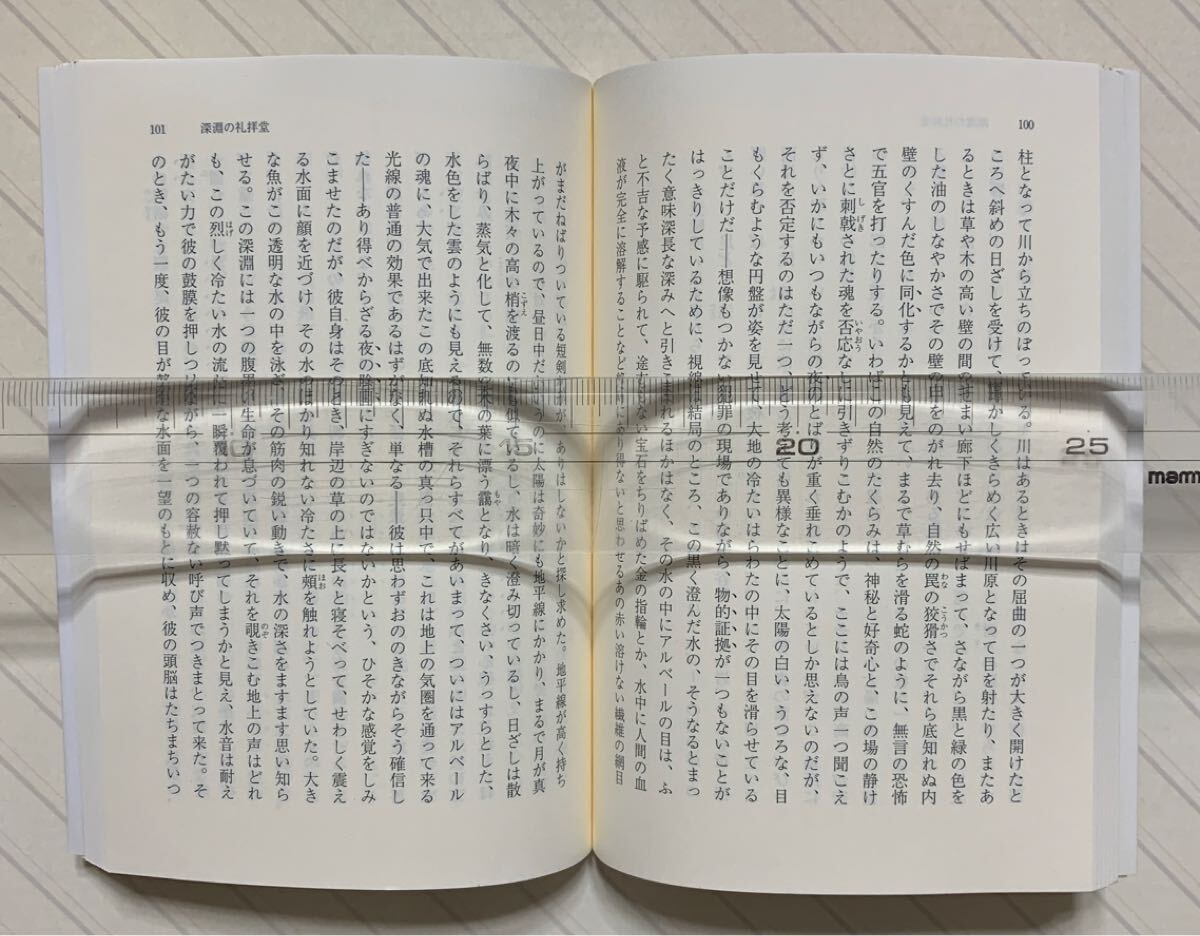 100
柱となって川から立ちのぼっている。川はあるときはその屈曲の一つが大きく開けたと
ころへ斜めの日ざしを受けて、輝かしくきらめく広い川原となって目を射たり、またあ
るときは草や木の高い壁の間のせまい廊下ほどにもせばまって、さながら黒と緑の色を
した油のしなやかさでその壁の中をのがれ去り、自然の罠の狡猾さでそれら底知れぬ内
壁のくすんだ色に同化するかとも見えて、まるで草むらを滑る蛇のように、無言の恐怖
で五官を打ったりする。いわばこの自然のたくらみは、神秘と好奇心と、この場の静け
さとに刺戟された魂を否応なしに引きずりこむかのようで、ここには鳥の声一つ聞こえ
ず、いかにもいつもながらの夜のとばりが重く垂れこめているとしか思えないのだが、
それを否定するのはただ一つ、どう考えても異様なことに、太陽の白い、うつろな、目
もくらむような円盤が姿を見せて、大地の冷たいはらわたの中にその目を滑らせている
ことだけだ――想像もつかない犯罪の現場でありながら、物的証拠が一つもないことが
はっきりしているために、視線は結局のところ、この黒く澄んだ水の、そうなるとまっ
たく意味深長な深みへと引きこまれるほかはなく、その水の中にアルベールの目は、ふ
と不吉な予感に駆られて、途方もない宝石をちりばめた金の指輪とか、水中に人間の血
液が完全に溶解することなど絶対にあり得ないと思わせるあの赤い溶けない繊維の網目
101 深淵の礼拝堂
がまだねばりついている短剣かが、ありはしないかと探し求めた。地平線が高く持ち
上がっているので、昼日中だというのに太陽は奇妙にも地平線にかかり、まるで月が真
夜中に木々の高い梢を渡るのにも似ているし、水は暗く澄み切っているし、日ざしは散
らばり、蒸気と化して、無数の木の葉に漂う靄となり、きなくさい、うっすらとした、
水色をした雲のようにも見えるので、それらすべてがあいまって、ついにはアルベール
の魂に、大気で出来たこの底知れぬ水槽の真っ只中で、これは地上の気圏を通って来る
光線の普通の効果であるはずがなく、単なる――彼は思わずおののきながらそう確信し
た――あり得べからざる夜の陰画にすぎないのではないかという、ひそかな感覚をしみ
こませたのだが、彼自身はそのとき、岸辺の草の上に長々と寝そべって、せわしく震え
る水面に顔を近づけ、その水のはかり知れない冷たさに頰を触れようとしていた。大き
な魚がこの透明な水の中を泳ぎ、その筋肉の鋭い動きで、水の深さをますます思い知ら
せる。この深淵には一つの腹黒い生命が息づいていて、それを覗きこむ地上の声はどれ
も、この烈しく冷たい水の流れに一瞬覆われて押し黙ってしまうかと見え、水音は耐え
がたい力で彼の鼓膜を押しつけながら、一つの容赦ない呼び声でつきまとって来た。そ
のとき、もう一度、彼の目が な水面を一望のもとに収め、彼の頭脳はたちまちいつ
15
20
25